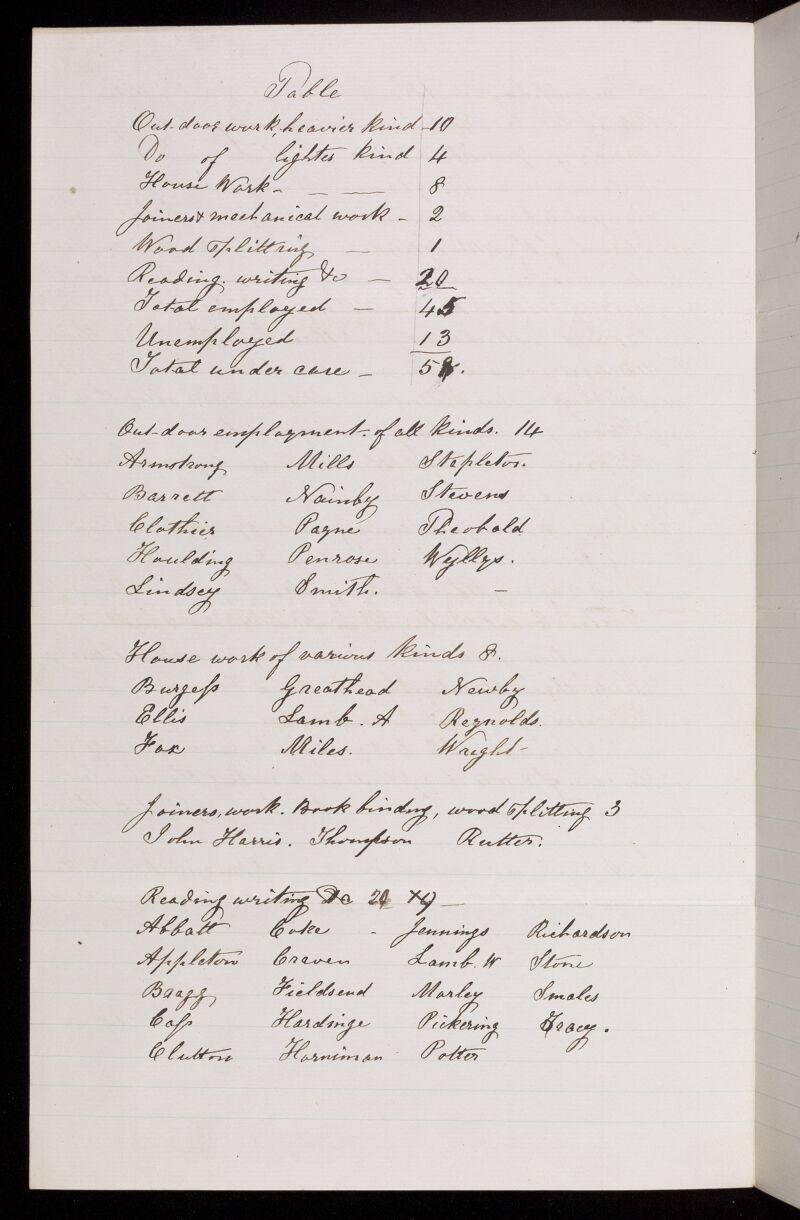 Table
Out-door work, heavier kind - 10
Do of lighter kind 4
House Work - 8
Joiners & mechanical work - 2
Wood splitting - 1
Reading. writing &c - 20
Total employed - 45
Unemployed 13
Total under care - 58.
Out-door employment - of all kinds. 14
Armstrong Mills Stapleton.
Barrett Nainby Stevens
Clothier Payne Theobald
Houlding Penrose Wyllys.
Lindsey Smith. -
House work of various kinds 8.
Burgess Greathead Newby
Ellis Lamb. A Reynolds.
Fox Miles. Wright-
Joiners, work. Book binding, wood splitting 3
John Harris. Thompson Rutter.
Reading writing &c 20
Abbatt Coke - Jennings Richardson
Appleton Craven Lamb. W Stone
Bragg Fieldsend Morley Smales
Cass Hardinge Pickering Tracy.
Clutton Horniman Potter